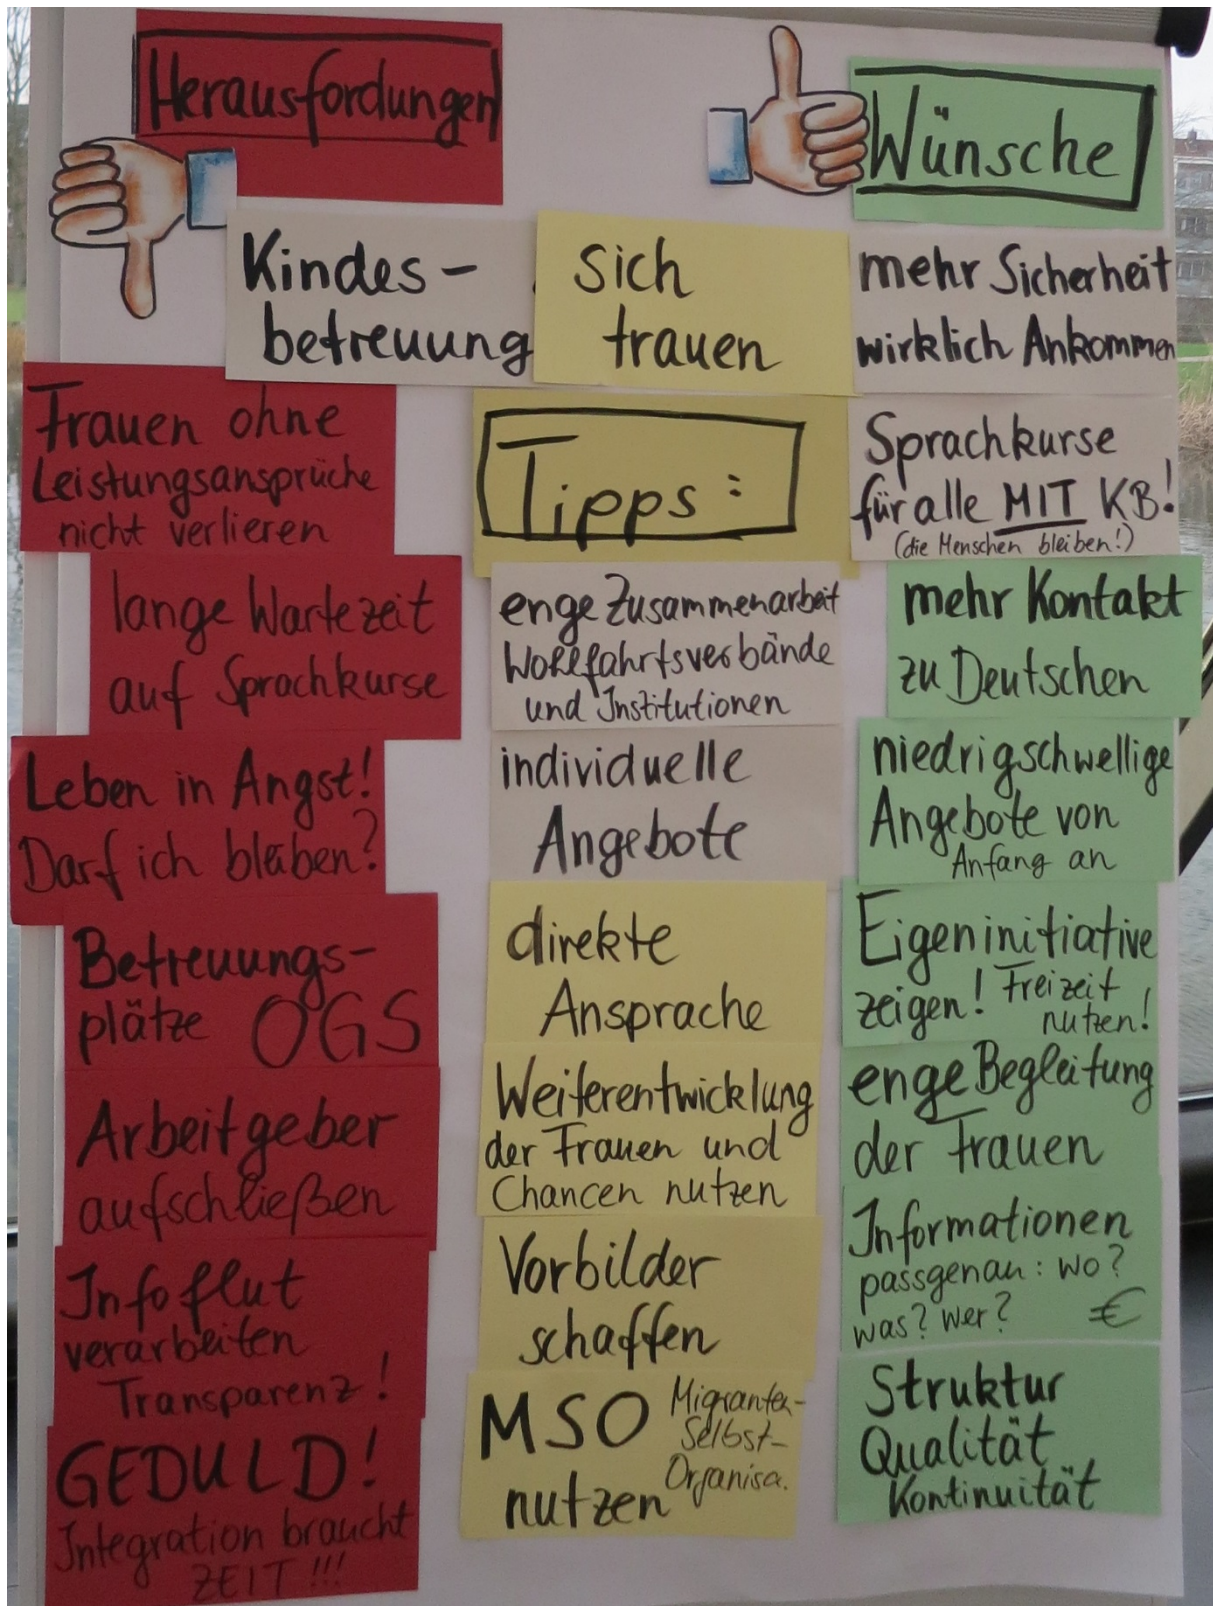 Herausfordungen
Kindes-
betreuung
Frauen ohne
Leistungsansprüche
nicht verlieren
lange Wartezeit
auf Sprachkurse
Leben in Angst!
Darf ich bleiben?
Betreuungs-
plätze OGS
Arbeitgeber
aufschließen
Infoflut
verarbeiten
Transparenz!
GEDULD!
Integration braucht
ZEIT!!!
sich
trauen
Tipps:
enge Zusammenarbeit
Wohlfahrtsverbände
und Institutionen
individuelle
Angebote
direkte
Ansprache
Weiterentwicklung
der Frauen und
Chancen nutzen
Vorbilder
schaffen
MSO Migranten-
Selbst-
Organisa.
nutzen
Wünsche
mehr Sicherheit
wirklich Ankommen
Sprachkurse
für alle MIT KB!
(die Menschen bleiben!)
mehr Kontakt
zu Deutschen
niedrigschwellige
Angebote von
Anfang an
Eigeninitiative
zeigen! Freizeit
nutzen!
enge Begleitung
der Frauen
Informationen
passgenau: wo?
was? wer? €
Struktur
Qualität
Kontinuität